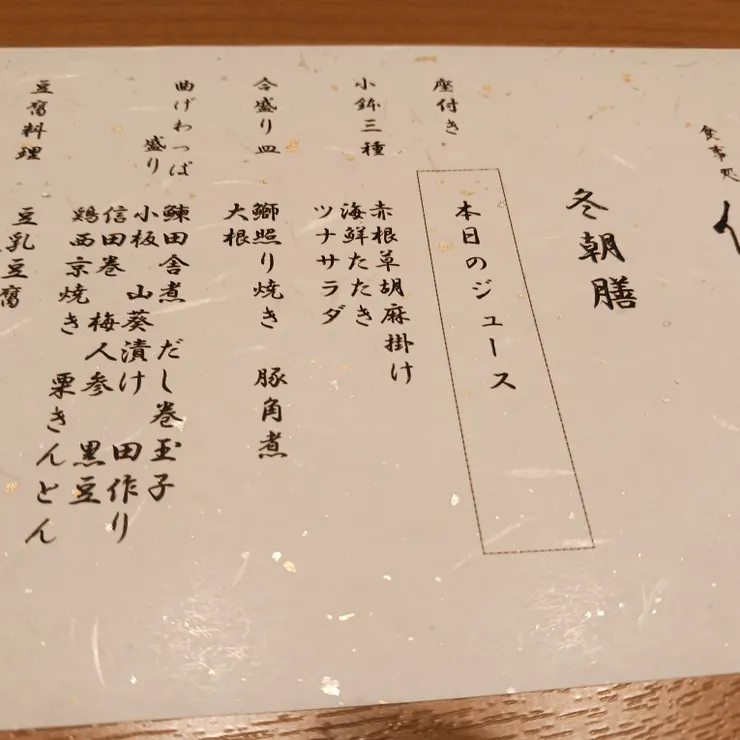 食事処
冬朝膳
座付き
本日のジュース
小鉢三種
赤根草胡麻掛け
海鮮たたき
ツナサラダ
合盛り皿
鰤照り焼き 豚角煮
大根
曲げわっぱ
盛り
鰊田舎煮 だし巻玉子
小板 山葵漬け 田作り
信田巻 梅人参 黒豆
鶏西京焼き 栗きんとん
豆腐料理
豆乳豆腐